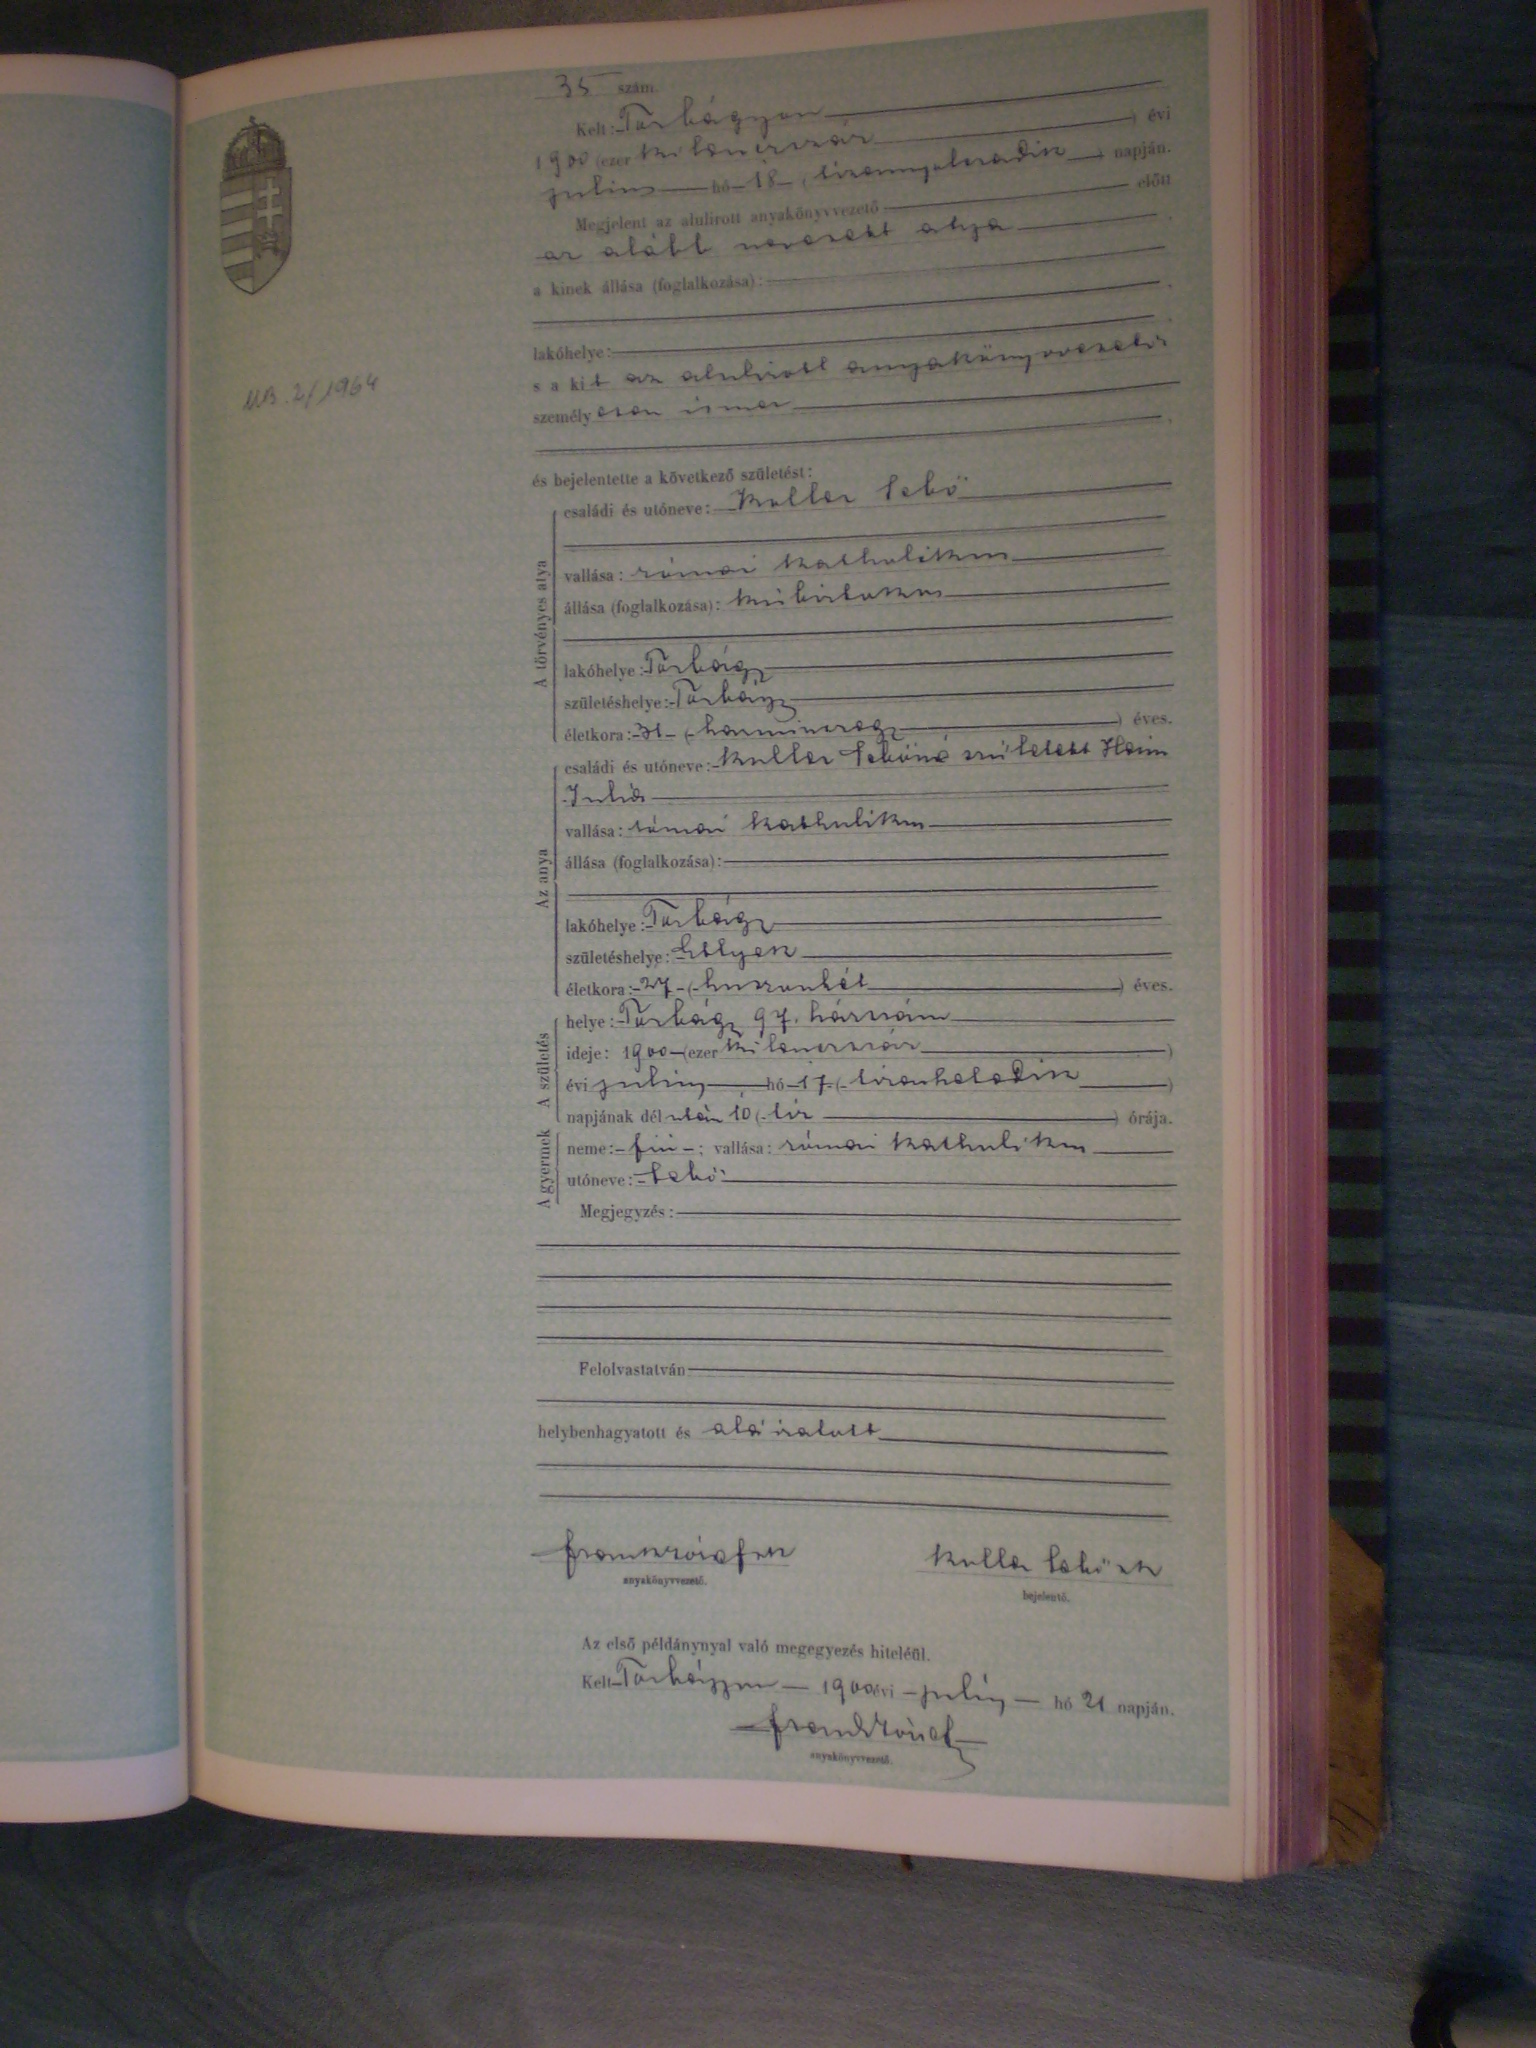 35 szám.
Kelt: Torbágyon
1900 (ezer kilenczszáz ) évi
julius hó 18 (tizennyolczadik ) napján.
Megjelent az alulirott anyakönyvvezető előtt
az alább nevezett atya
a kinek állása (foglalkozása):
lakóhelye:
s a kit az alulirott anyakönyvvezető
személyesen ismer
M.B. 2/1964
és bejelentette a következő születést:
A törvényes atya
családi és utóneve: Kuller Sebő
vallása: római katholikus
állása (foglalkozása):
lakóhelye: Torbágy
születéshelye: Torbágy
életkora: 31 (harminczegy ) éves.
Az anya
családi és utóneve: Kuller Sebőné született Heim
Julia
vallása: római katholikus
állása (foglalkozása):
lakóhelye: Torbágy
születéshelye: Ettyek
életkora: 27 (huszonhét ) éves.
A születés
helye: Torbágy 97. házszám
ideje: 1900 (ezer kilenczszáz )
évi julius hó 17 (tizenhetedik )
napjának dél után 10 (tíz ) órája.
A gyermek
neme: fiú ; vallása: római katholikus
utóneve: Sebő
Megjegyzés:
Felolvastatván
helybenhagyatott és aláiratott
anyakönyvvezető.
Kuller Sebő sk
bejelentő.
Az első példánynyal való megegyezés hiteléül.
Kelt Torbágyon 1900 évi julius hó 21 napján.
anyakönyvvezető.